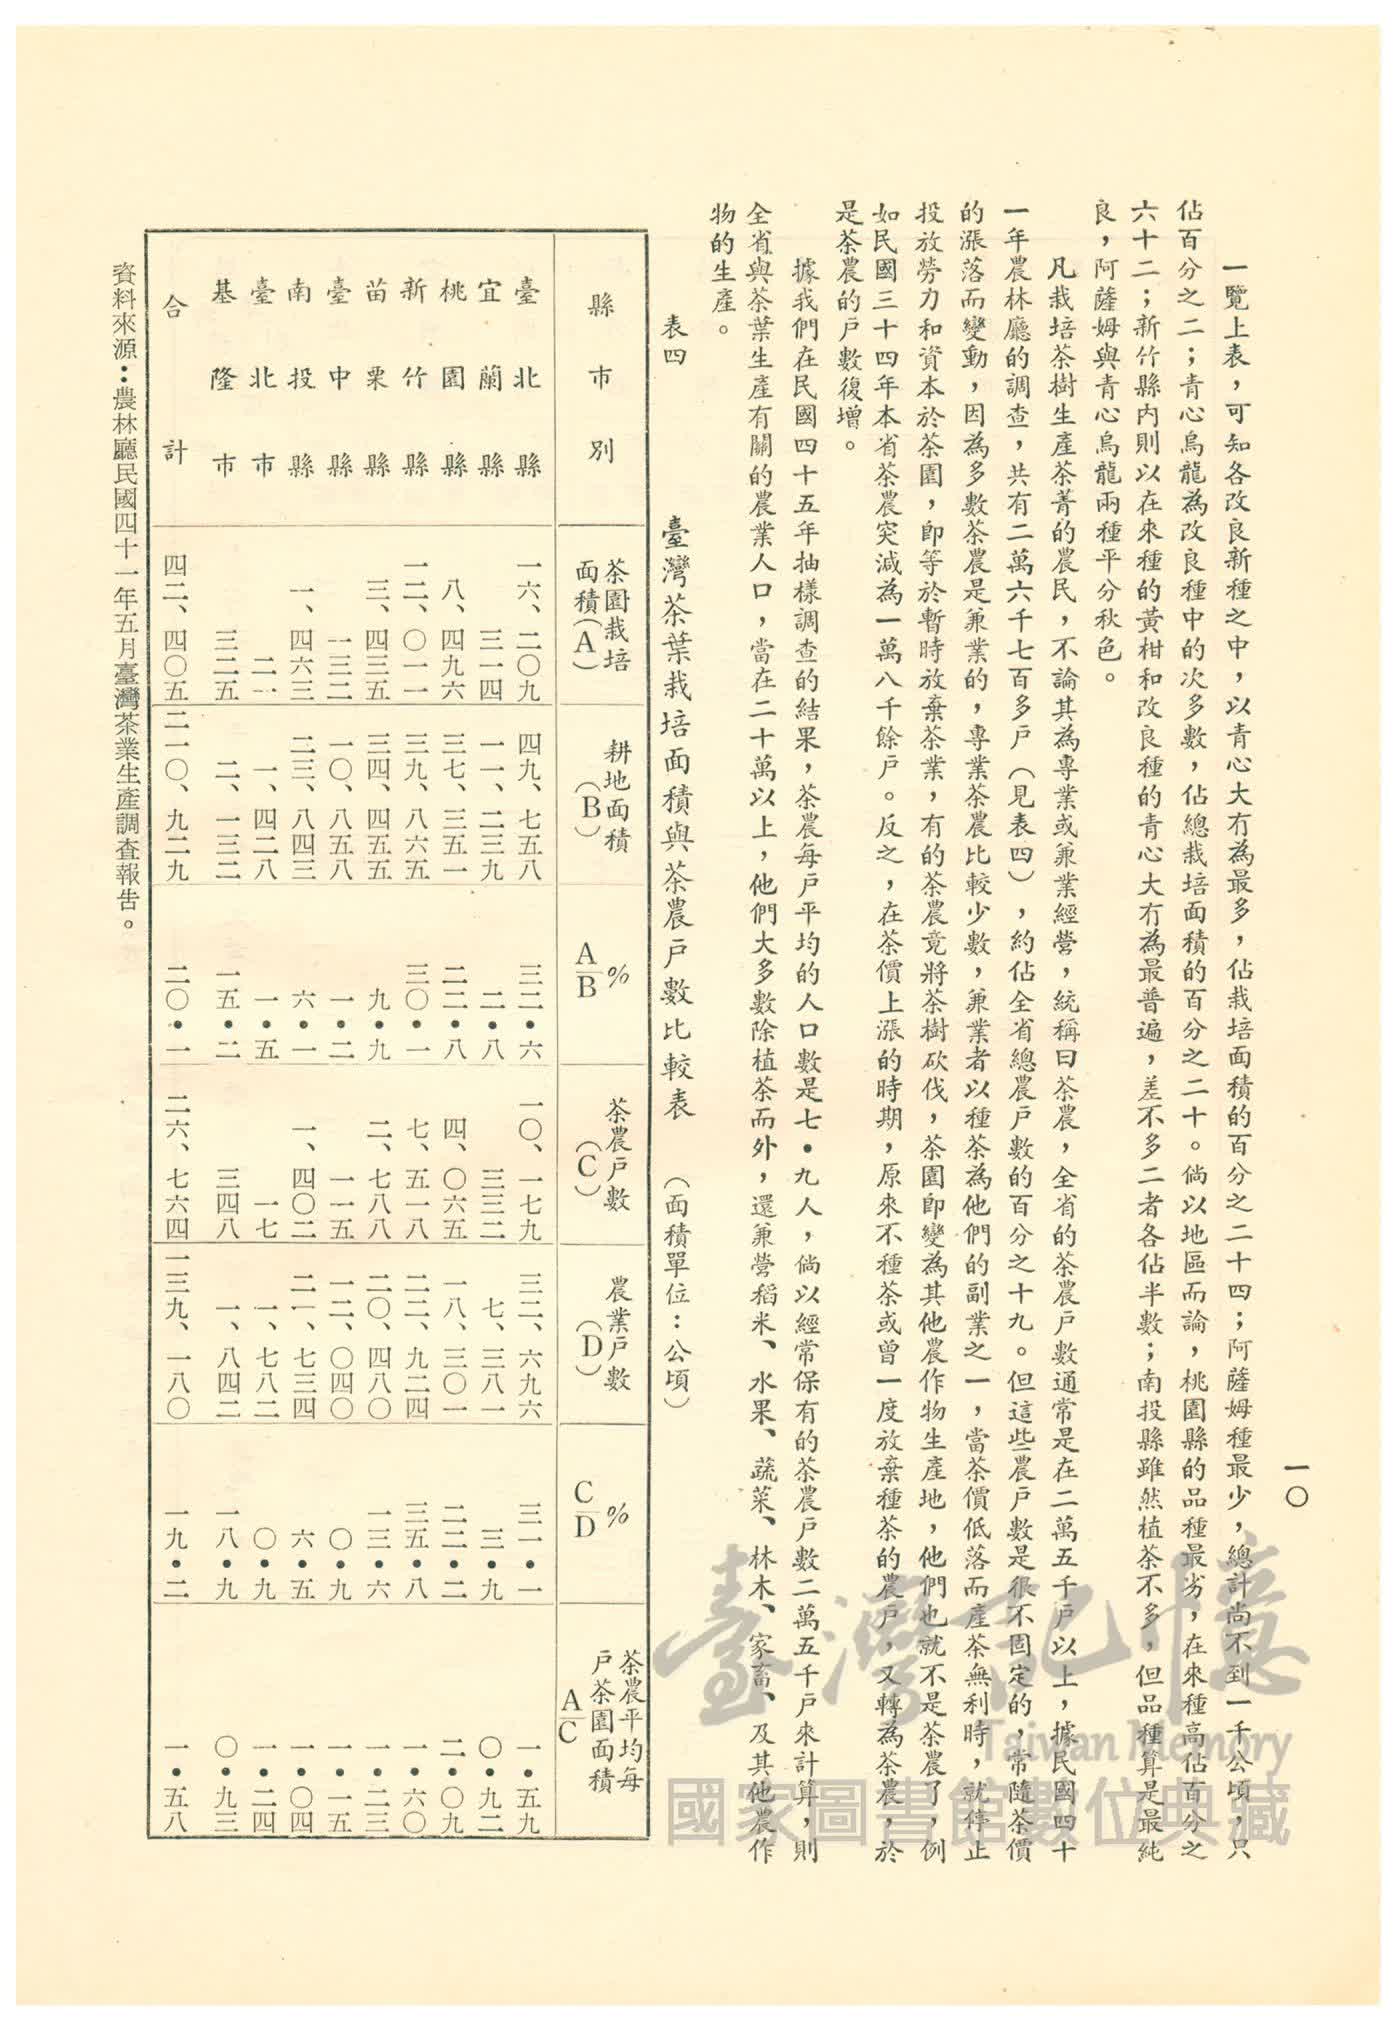 一〇
一覽上表，可知各改良新種之中，以青心大冇為最多，佔栽培面積的百分之二十四；阿薩姆種最少，總計尚不到一千公頃，只
佔百分之二；青心烏龍為改良種中的次多數，佔總栽培面積的百分之二十。倘以地區而論，桃園縣的品種最劣，在來種高佔百分之
六十二；新竹縣內則以在來種的黃柑和改良種的青心大冇為最普遍，差不多二者各佔半數；南投縣雖然植茶不多，但品種算是最純
良，阿薩姆與青心烏龍兩種平分秋色。
凡栽培茶樹生產茶菁的農民，不論其為專業或兼業經營，統稱曰茶農，全省的茶農戶數通常是在二萬五千戶以上，據民國四十
一年農林廳的調查，共有二萬六千七百多戶（見表四），約佔全省總農戶數的百分之十九。但這些農戶數是很不固定的，常隨茶價
的漲落而變動，因為多數茶農是兼業的，專業茶農比較少數，兼業者以種茶為他們的副業之一，當茶價低落而產茶無利時，就停止
投放勞力和資本於茶園，即等於暫時放棄茶業，有的茶農竟將茶樹砍伐，茶園即變為其他農作物生產地，他們也就不是茶農了，例
如民國三十四年本省茶農突減為一萬八千餘戶。反之，在茶價上漲的時期，原來不種茶或曾一度放棄種茶的農戶，又轉為茶農，於
是茶農的戶數復增。
據我們在民國四十五年抽樣調查的結果，茶農每戶平均的人口數是七•九人，倘以經常保有的茶農戶數二萬五千戶來計算，則
全省與茶葉生產有關的農業人口，當在二十萬以上，他們大多數除植茶而外，還兼營稻米、水果、蔬菜、林木、家畜、及其他農作
物的生產。
表四　臺灣茶葉栽培面積與茶農戶數比較表　（面積單位：公頃）
縣市別　茶園栽培面積（A）　耕地面積（B）　A/B %　茶農戶數（C）　農業戶數（D）　C/D %　茶農平均每戶茶園面積 A/C
臺北縣　一六、二〇九　四九、七五八　三二•六　一〇、一七九　三二、六九六　三一•一　一•五九
宜蘭縣　三一四　一一、二三九　二•八　三三二　七、三八一　三•九　〇•九二
桃園縣　八、四九六　三七、三五一　二二•八　四、〇六五　一八、三〇一　二二•二　二•〇九
新竹縣　一二、〇一一　三九、八六五　三〇•一　七、五一八　二二、九二四　三五•八　一•六〇
苗栗縣　三、四三五　三四、四五五　九•九　二、七八八　二〇、四八〇　一三•六　一•二三
臺中縣　一三二　一〇、八五八　一•二　一一五　一二、〇四〇　〇•九　一•一五
南投縣　一、四六三　二三、八四三　六•一　一、四〇二　二一、七三四　六•五　一•〇四
臺北市　二一　一、四二八　一•五　一七　一、七八二　〇•九　一•二四
基隆市　三二五　二、一三二　一五•二　三四八　一、八四二　一八•九　〇•九三
合計　四二、四〇五　二一〇、九二九　二〇•一　二六、七六四　一三九、一八〇　一九•二　一•五八
資料來源：農林廳民國四十一年五月臺灣茶業生產調查報告。
臺灣記憶
Taiwan Memory
國家圖書館數位典藏